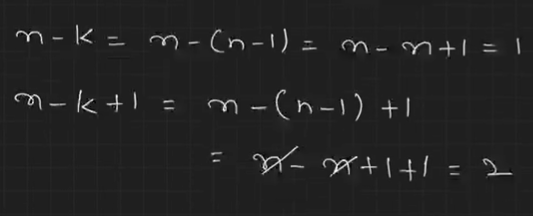 n - k = n - (n-1) = n - n + 1 = 1
n - k + 1 = n - (n-1) + 1
= n - n + 1 + 1 = 2